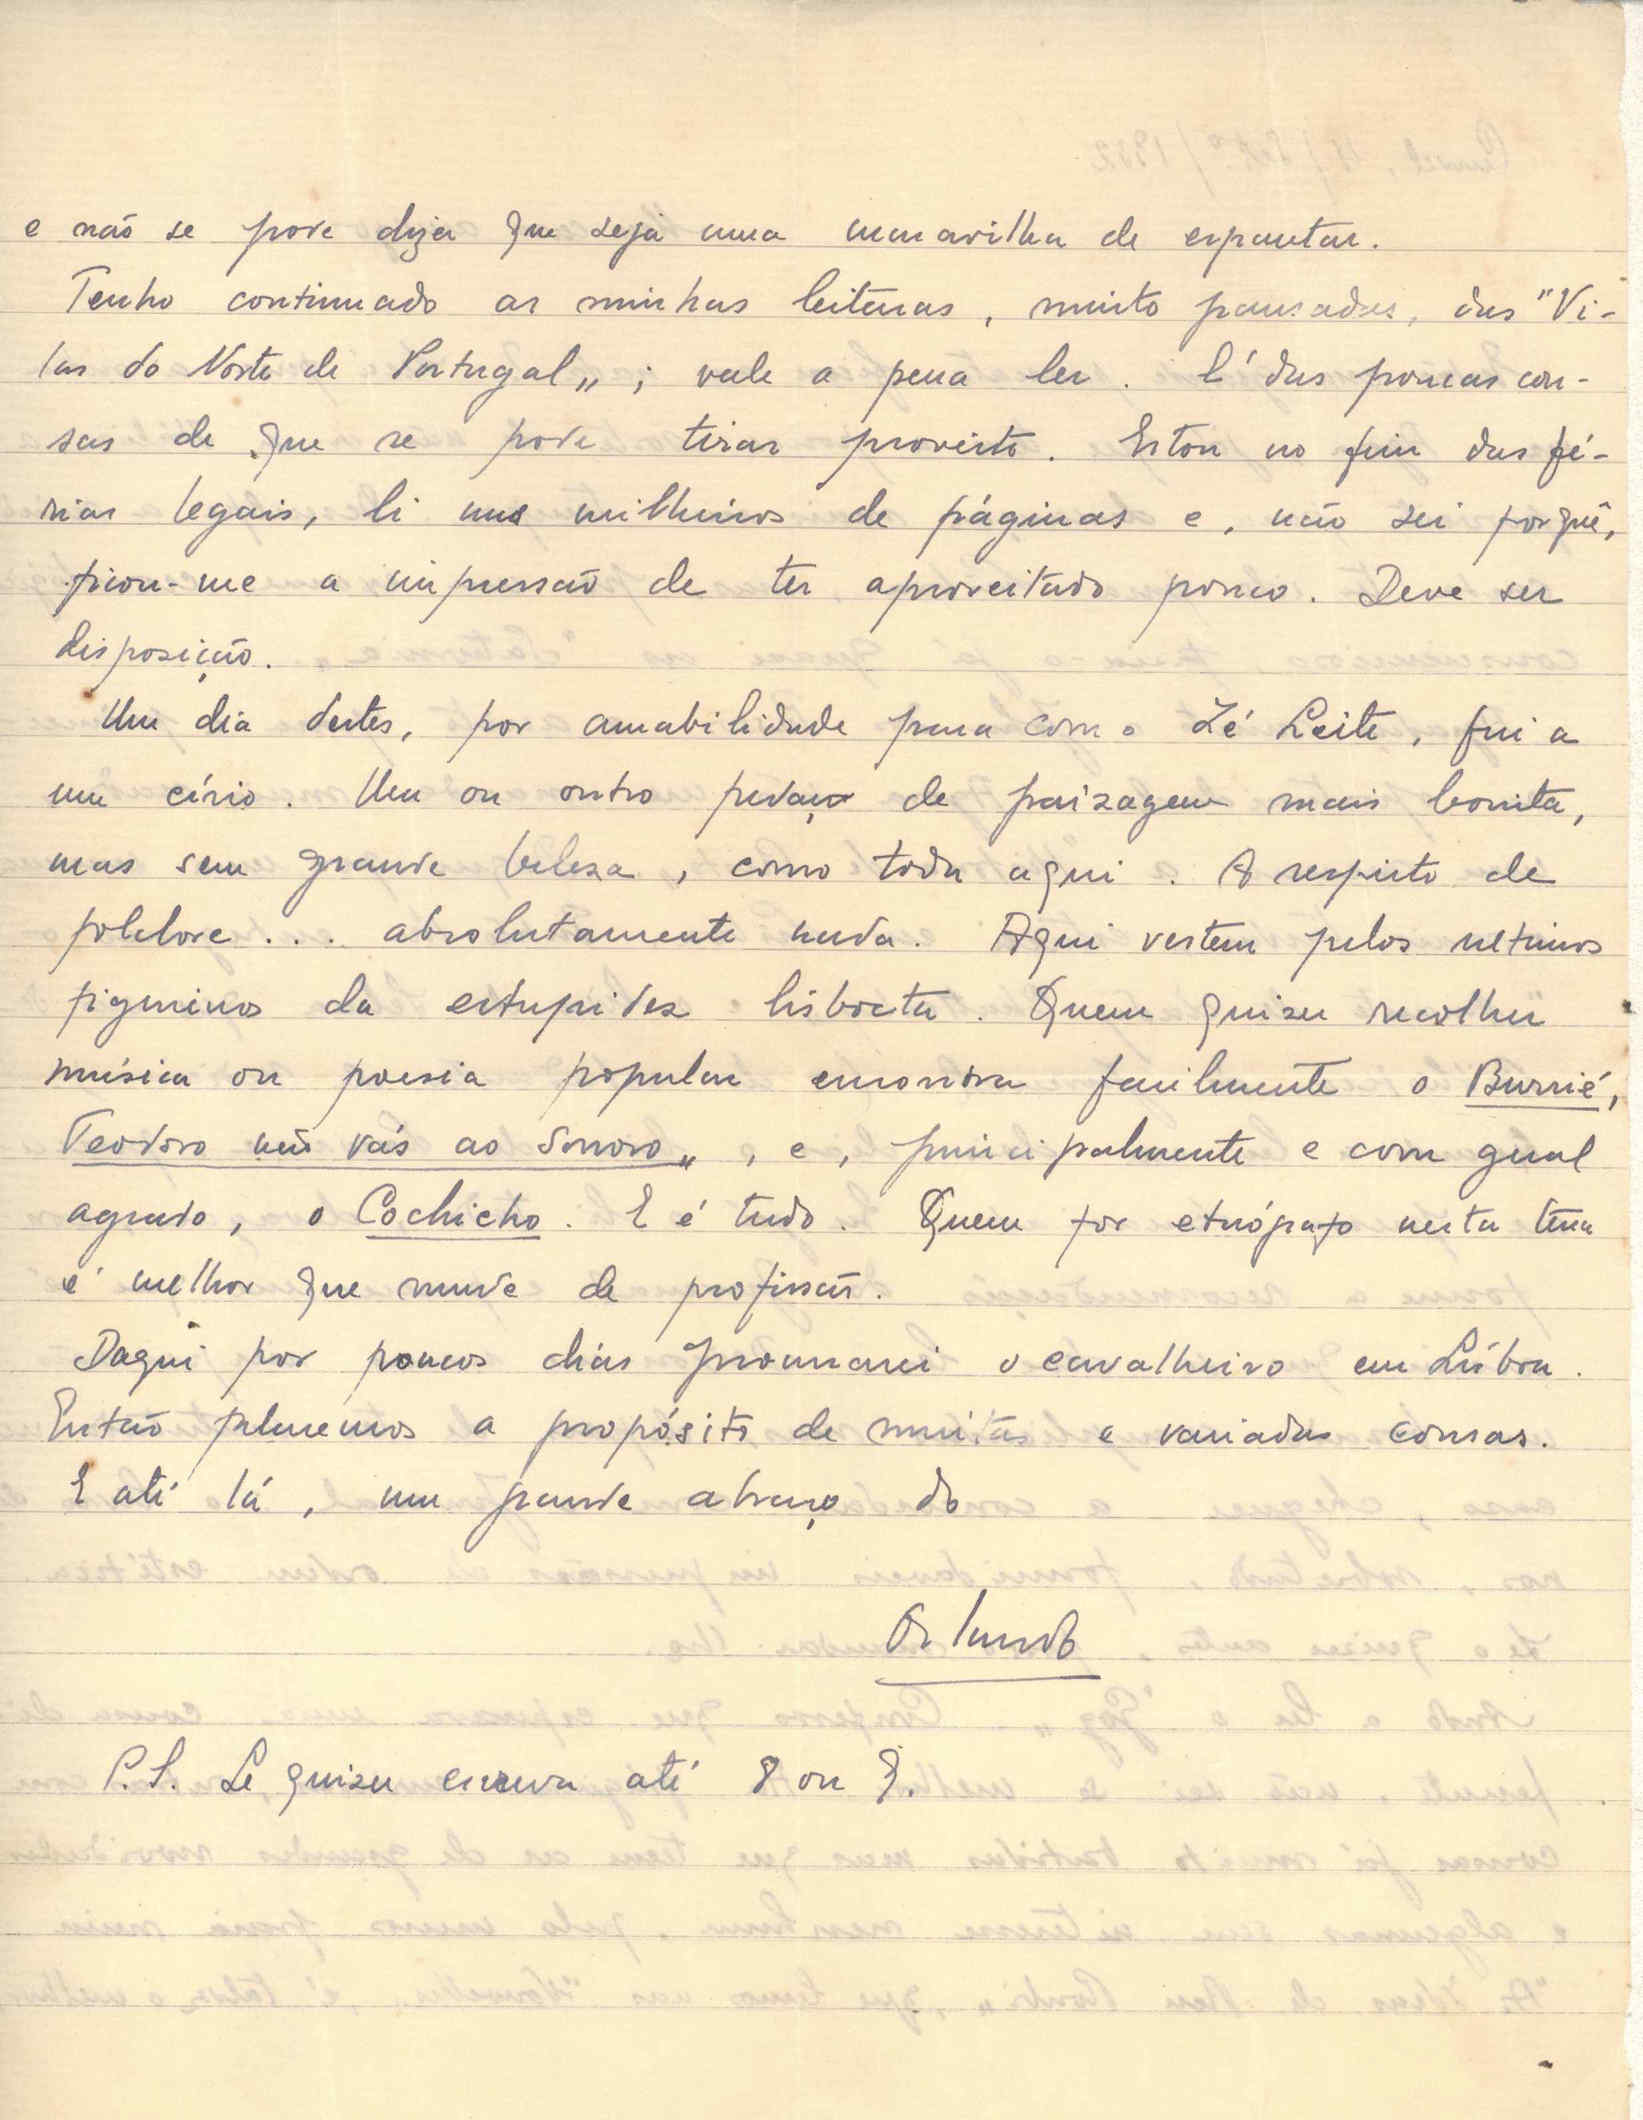 e não se pode dizer que seja uma maravilha de espantar.
Tenho continuado as minhas leituras, muito pausadas, das "Vi-
las do Norte de Portugal„; vale a pena ler. É das poucas cou-
sas de que se pode tirar proveito. Estou no fim das fé-
rias legais, li uns milheiros de páginas e, não sei porquê,
ficou-me a impressão de ter aproveitado pouco. Deve ser
disposição.
Um dia destes, por amabilidade para com o Zé Leite, fui a
um círio. Um ou outro pedaço de paizagem mais bonita,
mas sem grande beleza, como toda aqui. A respeito de
folclore... absolutamente nada. Aqui vestem pelos ultimos
figurinos da estupidez lisboeta. Quem quizer recolher
música ou poesia popular encontra facilmente o Burrié,
Teodoro não vás ao Sonoro„, e, principalmente e com geral
agrado, o Cochicho. E é tudo. Quem for etnógrafo nesta terra
é melhor que mude de profissão.
Daqui por poucos dias procurarei o cavalheiro em Lisboa.
Então falaremos a propósito de muitas e variadas cousas.
E até lá, um grande abraço do
Orlando
P.S. Se quizer escreva até 8 ou 9.